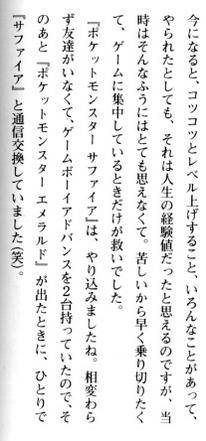 今になると、コツコツとレベル上げすること、いろんなことがあって、
やられたとしても、それは人生の経験値だったと思えるのですが、当
時はそんなふうにはとても思えなくて。苦しいから早く乗り切りたく
て、ゲームに集中しているときだけが救いでした。
『ポケットモンスター サファイア』は、やり込みましたね。相変わら
ず友達がいなくて、ゲームボーイアドバンスを2台持っていたので、そ
のあと『ポケットモンスター エメラルド』が出たときに、ひとりで
『サファイア』と通信交換していました(笑)。